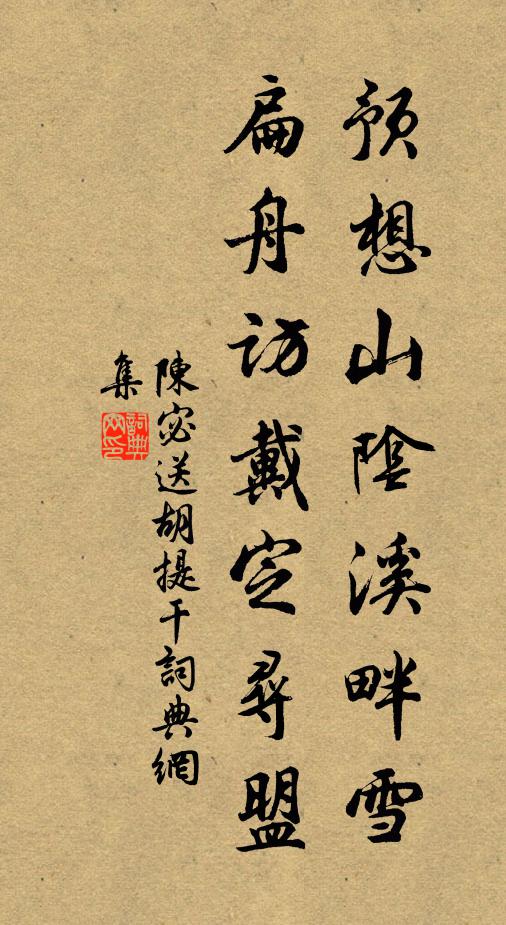 預想山陰溪畔雪
扁舟訪戴定尋盟
陳宓送胡提干詞典網
集
詞典網印